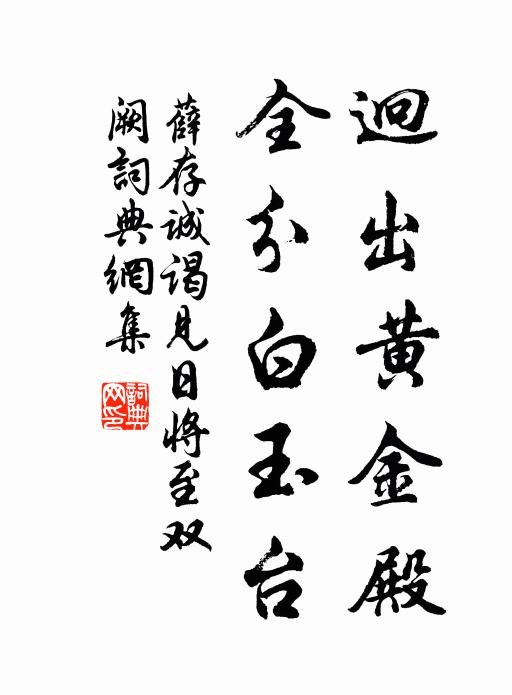 迥出黄金殿
全分白玉台
薛存诚谒见日将至双
阙詞典網集
詞典网印